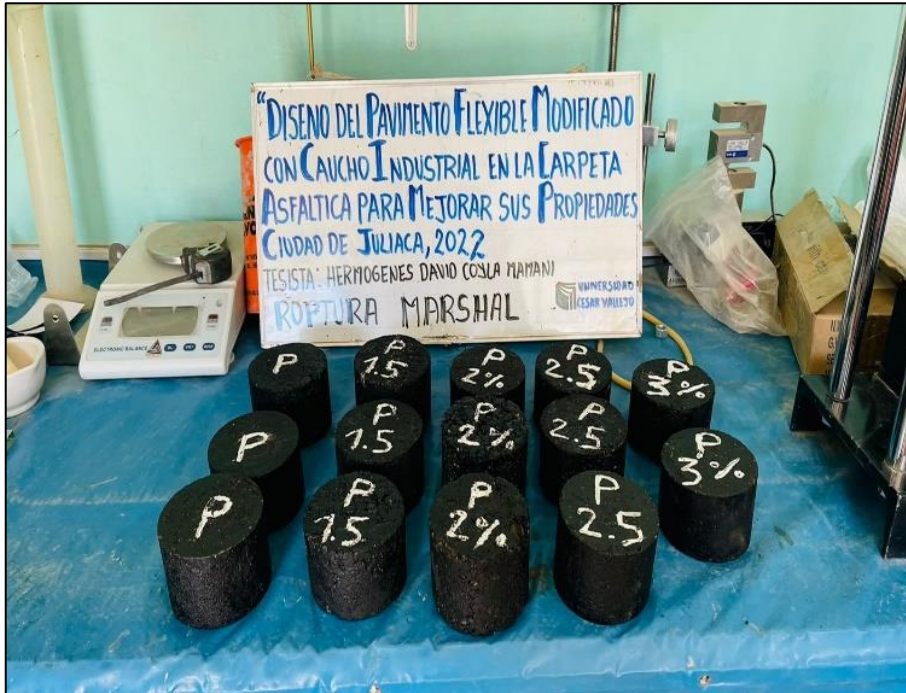 "DISEÑO DEL PAVIMENTO FLEXIBLE MODIFICADO
CON CAUCHO INDUSTRIAL EN LA CARPETA
ASFALTICA PARA MEJORAR SUS PROPIEDADES
CIUDAD DE JULIACA, 2022
TESISTA: HERMOGENES DAVID COYLA MAMANI
ROPTURA MARSHAL
UNIVERSIDAD
CESAR VALLEJO
ELECTRONIC BALANCE
P
P
1.5
P
2%
P
2.5
P
3%
P
P
1.5
P
2%
P
2.5
P
3%
P
P
1.5
P
2%
P
2.5